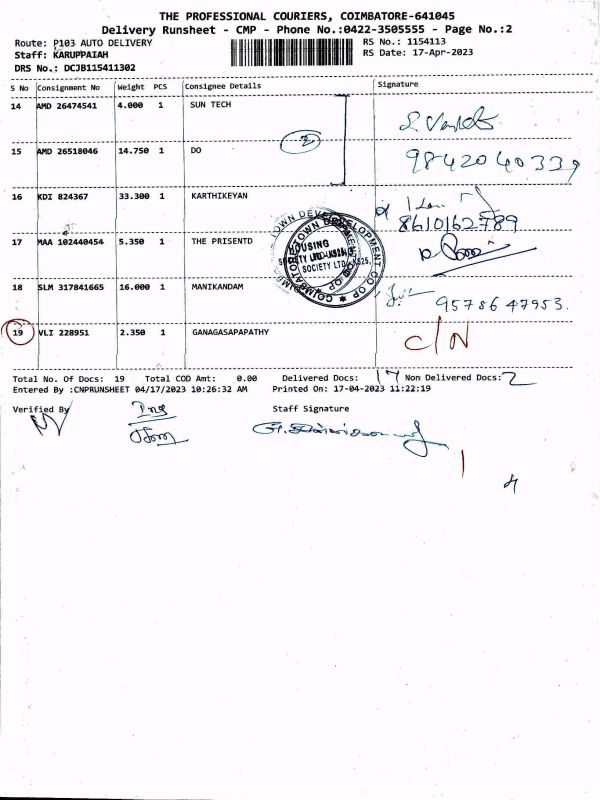 THE PROFESSIONAL COURIERS, COIMBATORE-641045
Delivery Runsheet - CMP - Phone No.:0422-3505555 - Page No.:2
Route: P103 AUTO DELIVERY RS No.: 1154113
Staff: KARUPPAIAH RS Date: 17-Apr-2023
DRS No.: DCJB115411302
S No Consignment No Weight PCS Consignee Details Signature
14 AMD 26474541 4.000 1 SUN TECH
15 AMD 26518046 14.750 1 DO 2 9842040339
16 KDI 824367 33.300 1 KARTHIKEYAN
8610162789
17 MAA 102440454 5.350 1 THE PRISENTD
18 SLM 317841665 16.000 1 MANIKANDAM 9578647953.
19 VLI 228951 2.350 1 GANAGASAPAPATHY C/N
Total No. Of Docs: 19 Total COD Amt: 0.00 Delivered Docs: 17 Non Delivered Docs: 2
Entered By :CNPRUNSHEET 04/17/2023 10:26:32 AM Printed On: 17-04-2023 11:22:19
Verified By Staff Signature